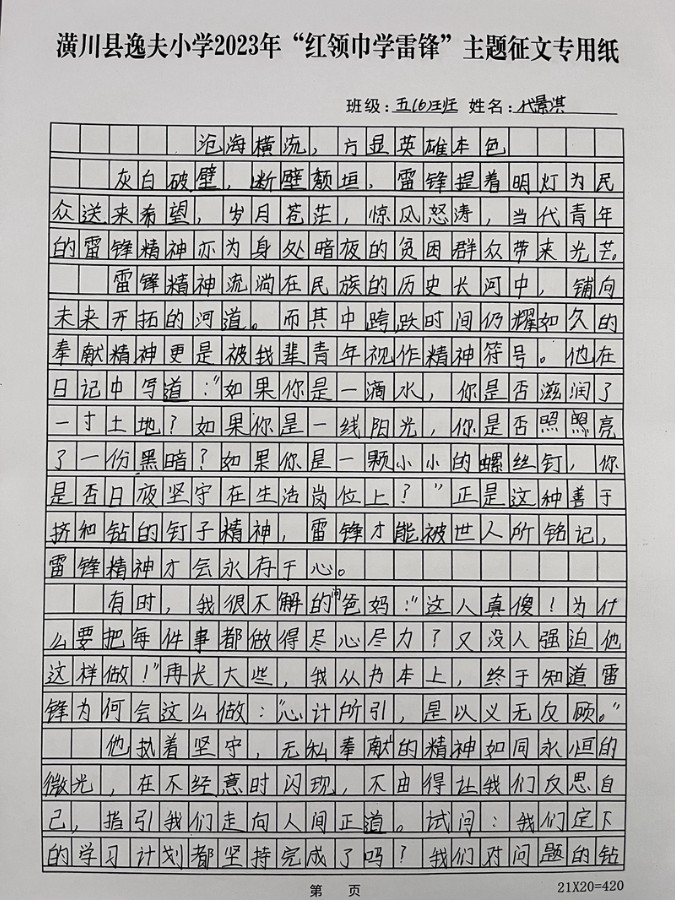 潢川县逸夫小学2023年“红领巾学雷锋”主题征文专用纸
班级：五(6)班 姓名：代景淇
沧海横流，方显英雄本色
灰白破壁，断壁颓垣，雷锋提着明灯为民
众送来希望，岁月苍茫，惊风怒涛，当代青年
的雷锋精神亦为身处暗夜的贫困群众带来光芒。
雷锋精神流淌在民族的历史长河中，铺向
未来开拓的河道。而其中跨跌时间仍耀如久的
奉献精神更是被我辈青年视作精神符号。他在
日记中写道：“如果你是一滴水，你是否滋润了
一寸土地？如果你是一线阳光，你是否照照亮
了一份黑暗？如果你是一颗小小的螺丝钉，你
是否日夜坚守在生活岗位上？”正是这种善于
挤和钻的钉子精神，雷锋才能被世人所铭记，
雷锋精神才会永存于心。
有时，我很不解的问爸妈：“这人真傻！为什
么要把每件事都做得尽心尽力？又没人强迫他
这样做！”再长大些，我从书本上，终于知道雷
锋为何会这么做：“心计所引，是以义无反顾。”
他执着坚守，无私奉献的精神如同永恒的
微光，在不经意时闪现，不由得让我们反思自
己，指引我们走向人间正道。试问：我们定下
的学习计划都坚持完成了吗？我们对问题的钻
第 页
21X20=420